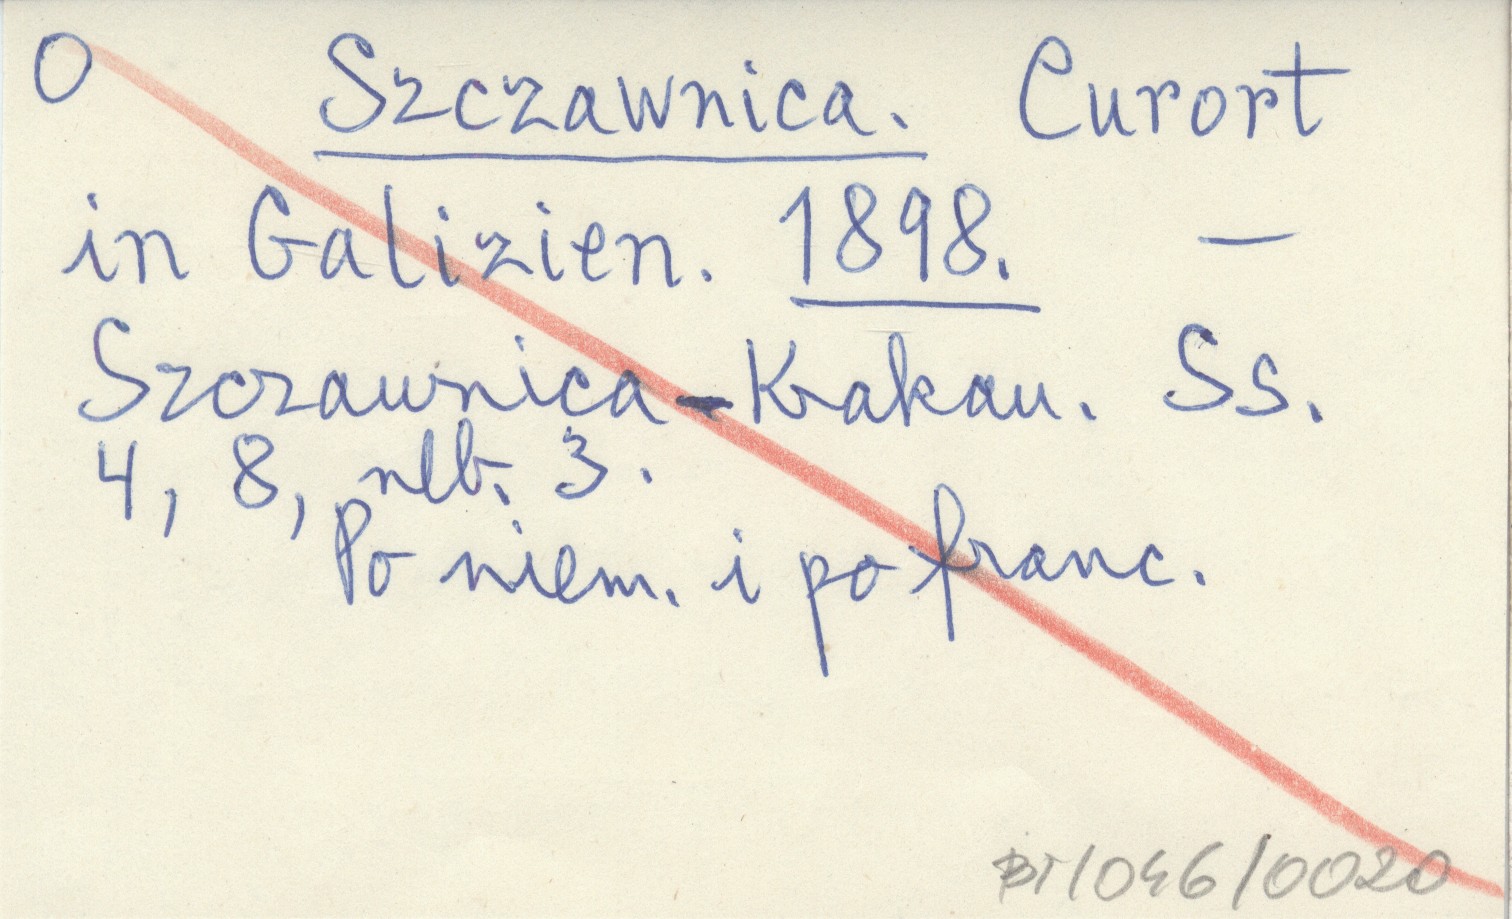 O Szczawnica. Curort
in Galizien. 1898. —
Szczawnica - Krakau. Ss.
4, 8, nlb. 3.
Po niem. i po franc.
BT/046/0020